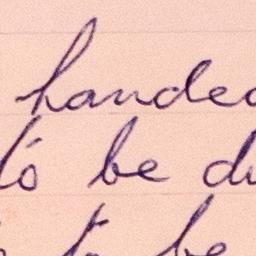 handed
to be du
to be